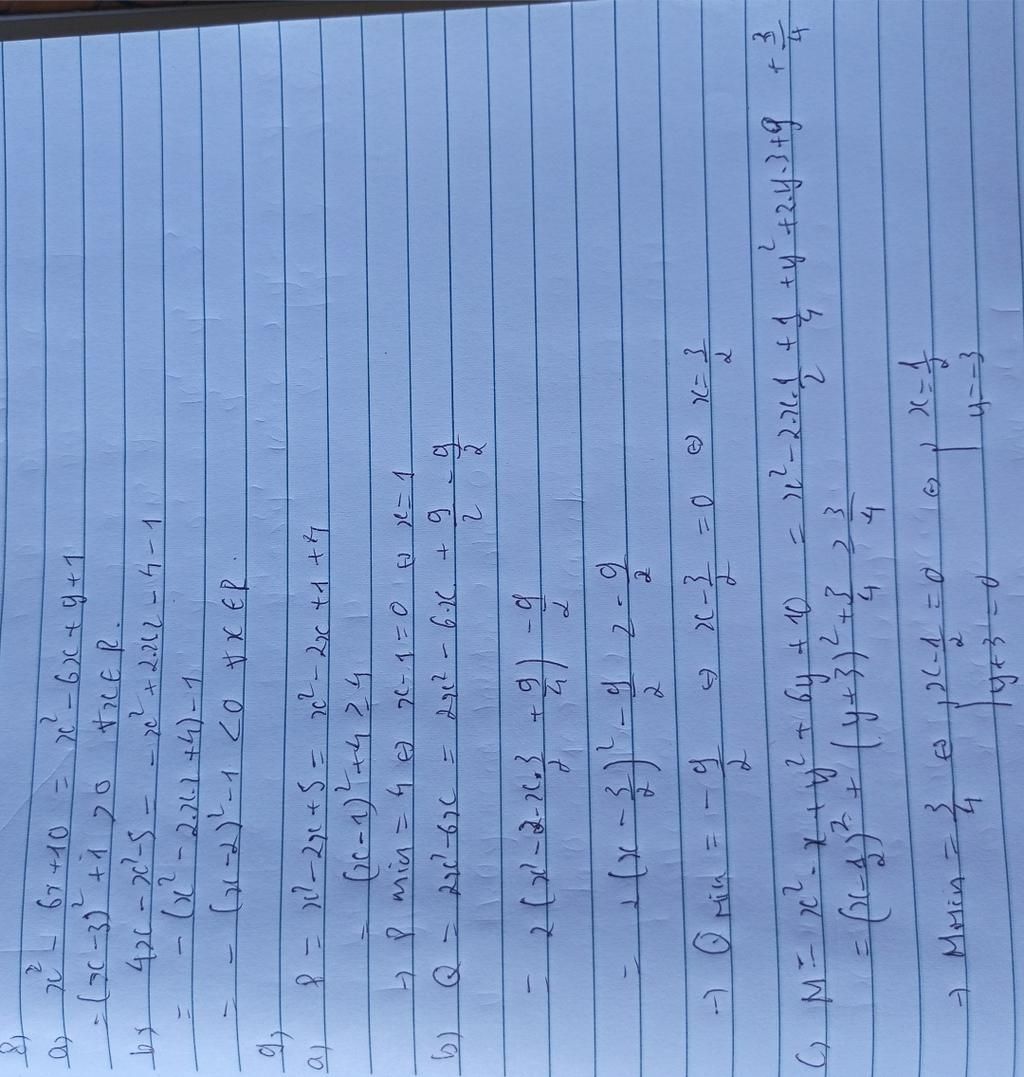 8)
a) x² - 6x + 10 = x² - 6x + 9 + 1
= (x - 3)² + 1 > 0 ∀x ∈ R.
b) 4x - x² - 5 = - x² + 2.x2 - 4 - 1
= - (x² - 2.x.2 + 4) - 1
= - (x - 2)² - 1 < 0 ∀x ∈ R.
9)
a) P = x² - 2x + 5 = x² - 2x + 1 + 4
= (x - 1)² + 4 ≥ 4
→ P min = 4 ⇔ x - 1 = 0 ⇔ x = 1
b) Q = 2x² - 6x = 2x² - 6.x + 9/2 - 9/2
= 2 (x² - 2.x.3/2 + 9/4) - 9/2
= 2 (x - 3/2)² - 9/2 ≥ - 9/2
→ Q min = - 9/2 ⇔ x - 3/2 = 0 ⇔ x = 3/2
c) M = x² - x + y² + 6y + 10 = x² - 2.x.1/2 + 1/4 + y² + 2.y.3 + 9 + 3/4
= (x - 1/2)² + (y + 3)² + 3/4 ≥ 3/4
→ M min = 3/4 ⇔ x - 1/2 = 0 ⇔ x = 1/2
y + 3 = 0 y = -3